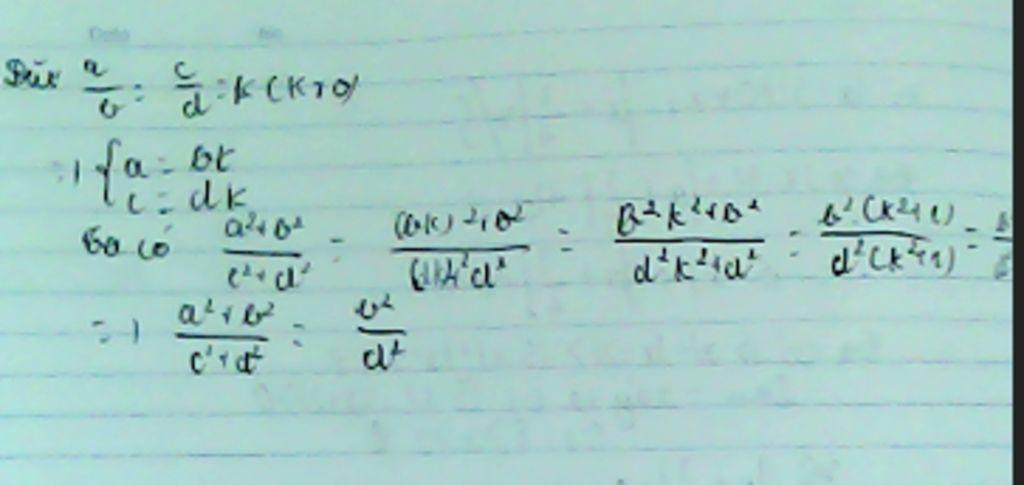 Đặt a/b = c/d = k (k≠0)
=> { a = bk
c = dk
Ta có (a²+b²)/(c²+d²) = ((bk)²+b²)/((dk)²+d²) = (b²k²+b²)/(d²k²+d²) = (b²(k²+1))/(d²(k²+1)) =
=> (a²+b²)/(c²+d²) = b²/d²